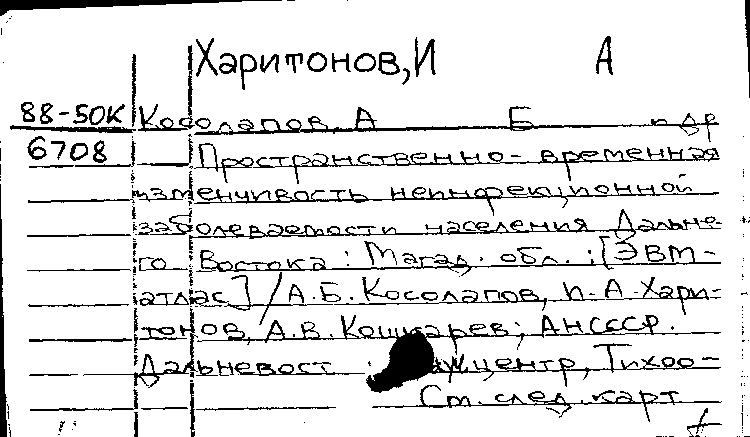 Харитонов, И А
88-50К Косолапов, А Б и др
6708 Пространственно-временная
изменчивость неинфекционной
заболеваемости населения Дальне-
го Востока: Магад. обл.: [ЭВМ-
атлас] / А.Б. Косолапов, И.А. Хари-
тонов, А.В. Кошкарев; АН СССР.
Дальневост центр, Тихоо-
См. след. карт